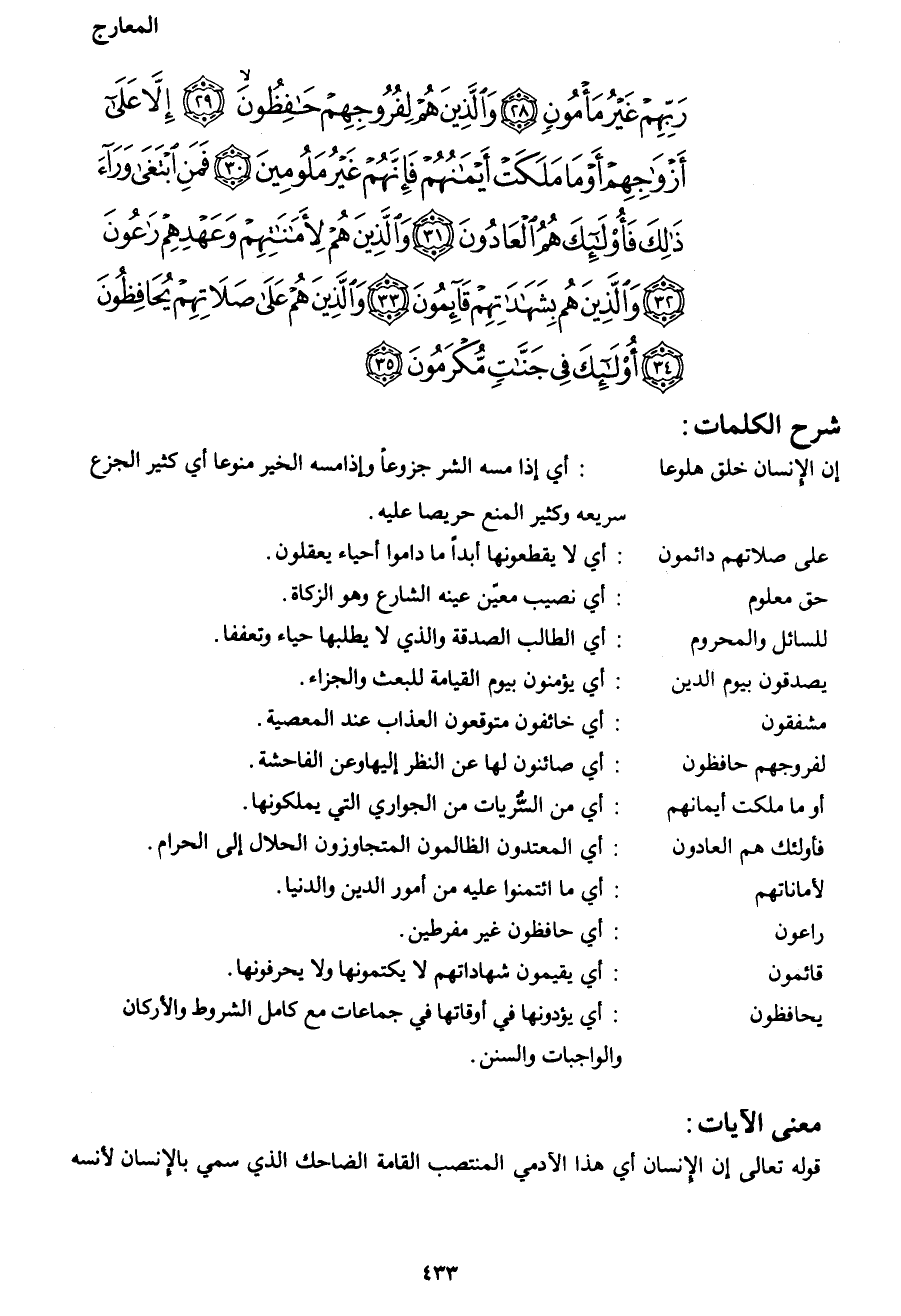 المعارج
رَبِّهِمْ غَيْرُ مَأْمُونٍ ﴿٢٨﴾ وَٱلَّذِينَ هُمْ لِفُرُوجِهِمْ حَٰفِظُونَ ﴿٢٩﴾ إِلَّا عَلَىٰٓ
أَزْوَٰجِهِمْ أَوْ مَا مَلَكَتْ أَيْمَٰنُهُمْ فَإِنَّهُمْ غَيْرُ مَلُومِينَ ﴿٣٠﴾ فَمَنِ ٱبْتَغَىٰ وَرَآءَ
ذَٰلِكَ فَأُو۟لَٰٓئِكَ هُمُ ٱلْعَادُونَ ﴿٣١﴾ وَٱلَّذِينَ هُمْ لِأَمَٰنَٰتِهِمْ وَعَهْدِهِمْ رَٰعُونَ
﴿٣٢﴾ وَٱلَّذِينَ هُم بِشَهَٰدَٰتِهِمْ قَآئِمُونَ ﴿٣٣﴾ وَٱلَّذِينَ هُمْ عَلَىٰ صَلَاتِهِمْ يُحَافِظُونَ
﴿٣٤﴾ أُو۟لَٰٓئِكَ فِى جَنَّٰتٍ مُّكْرَمُونَ ﴿٣٥﴾
شرح الكلمات :
إن الإنسان خلق هلوعا : أي إذا مسه الشر جزوعاً وإذامسه الخير منوعا أي كثير الجزع
سريعه وكثير المنع حريصا عليه .
على صلاتهم دائمون : أي لا يقطعونها أبداً ما داموا أحياء يعقلون .
حق معلوم : أي نصيب معيّن عينه الشارع وهو الزكاة .
للسائل والمحروم : أي الطالب الصدقة والذي لا يطلبها حياء وتعففا .
يصدقون بيوم الدين : أي يؤمنون بيوم القيامة للبعث والجزاء .
مشفقون : أي خائفون متوقعون العذاب عند المعصية .
لفروجهم حافظون : أي صائنون لها عن النظر إليهاوعن الفاحشة .
أو ما ملكت أيمانهم : أي من السُّريات من الجواري التي يملكونها .
فأولئك هم العادون : أي المعتدون الظالمون المتجاوزون الحلال إلى الحرام .
لأماناتهم : أي ما ائتمنوا عليه من أمور الدين والدنيا .
راعون : أي حافظون غير مفرطين .
قائمون : أي يقيمون شهاداتهم لا يكتمونها ولا يحرفونها .
يحافظون : أي يؤدونها في أوقاتها في جماعات مع كامل الشروط والأركان
والواجبات والسنن .
معنى الآيات :
قوله تعالى إن الإنسان أي هذا الآدمي المنتصب القامة الضاحك الذي سمي بالإنسان لأنسه
٤٣٣